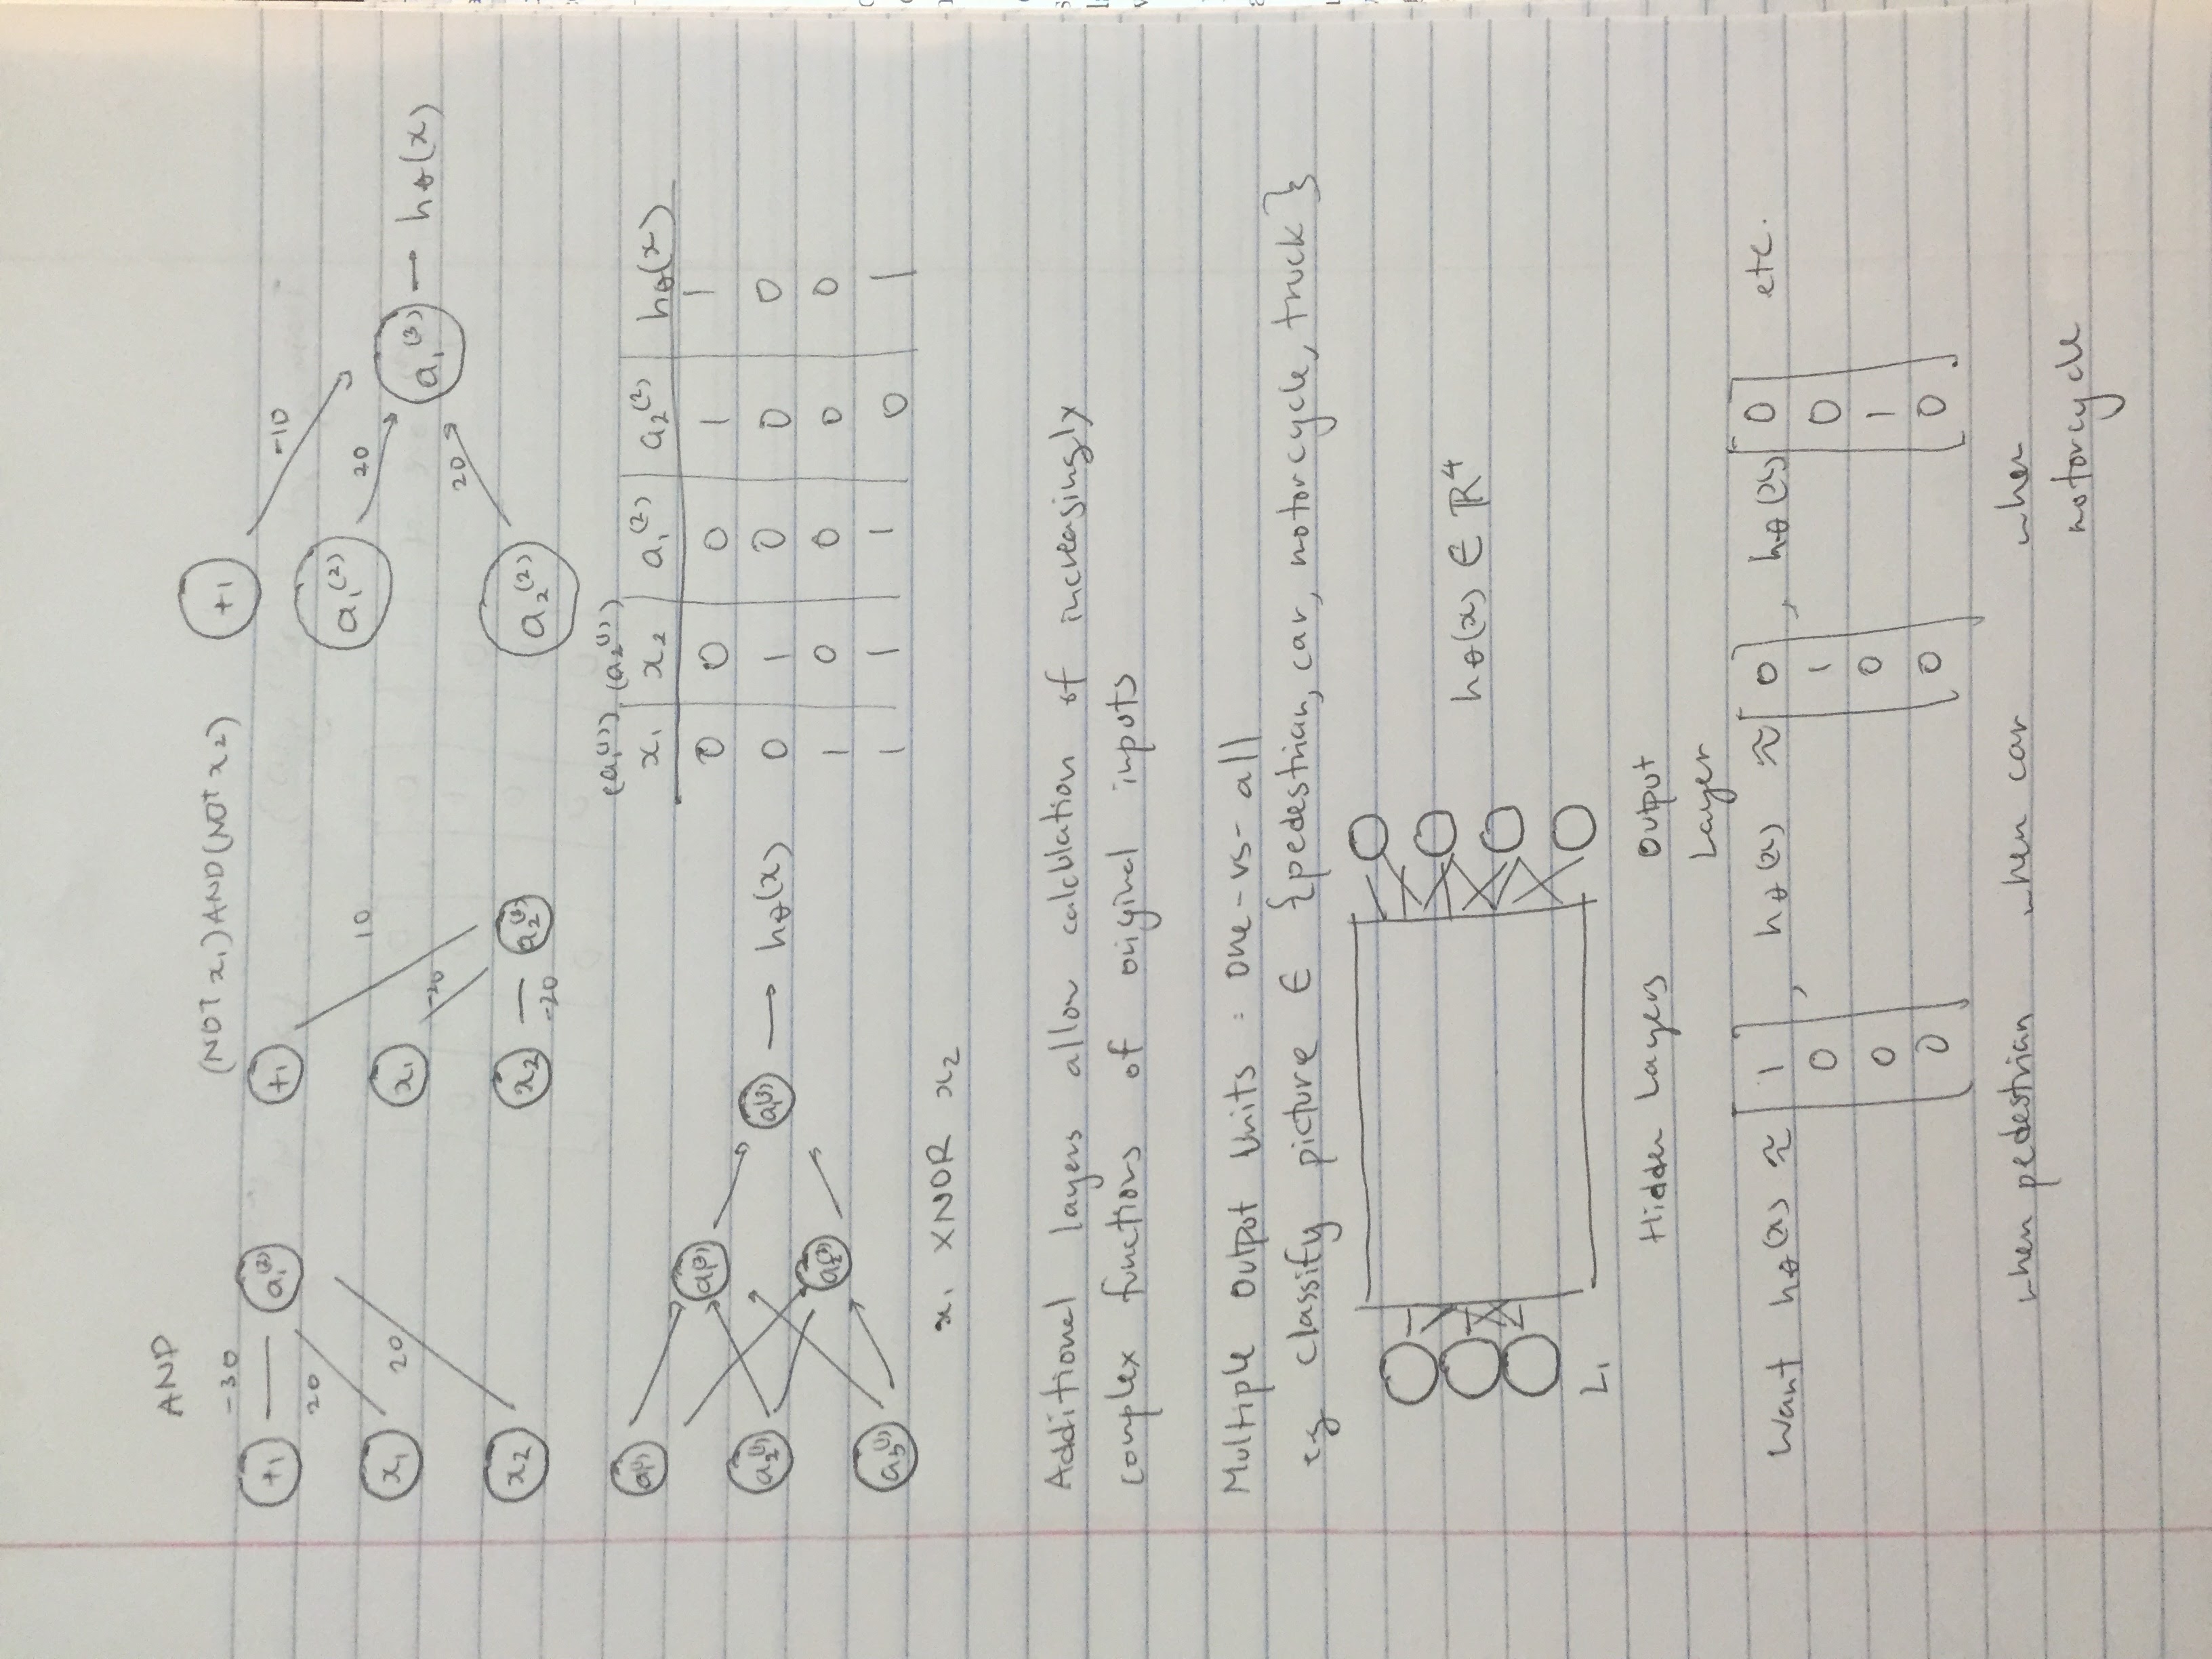 AND
-30
+1 a₁⁽²⁾
20
x₁
20
x₂
(NOT x₁) AND (NOT x₂)
+1
10
x₁
-20
x₂ a₂⁽²⁾
-20
+1
-10
a₁⁽²⁾
20
a₁⁽³⁾ → hθ(x)
20
a₂⁽²⁾
a₁⁽¹⁾
a₁⁽²⁾
a₂⁽¹⁾ a₁⁽³⁾ → hθ(x)
a₂⁽²⁾
a₃⁽¹⁾
x₁ XNOR x₂
(a₁⁽¹⁾) (a₂⁽¹⁾)
x₁ x₂ a₁⁽²⁾ a₂⁽²⁾ hθ(x)
0 0 0 1 1
0 1 0 0 0
1 0 0 0 0
1 1 1 0 1
Additional layers allow calculation of increasingly
complex functions of original inputs
Multiple Output Units : One-vs-all
eg classify picture ∈ {pedestrian, car, motorcycle, truck}
hθ(x) ∈ ℝ⁴
L₁
Hidden Layers Output
Layer
Want hθ(x) ≈ [1 , hθ(x) ≈ [0 , hθ(x) [0 etc.
0 1 0
0 0 1
0] 0] 0]
when pedestrian when car when
motorcycle